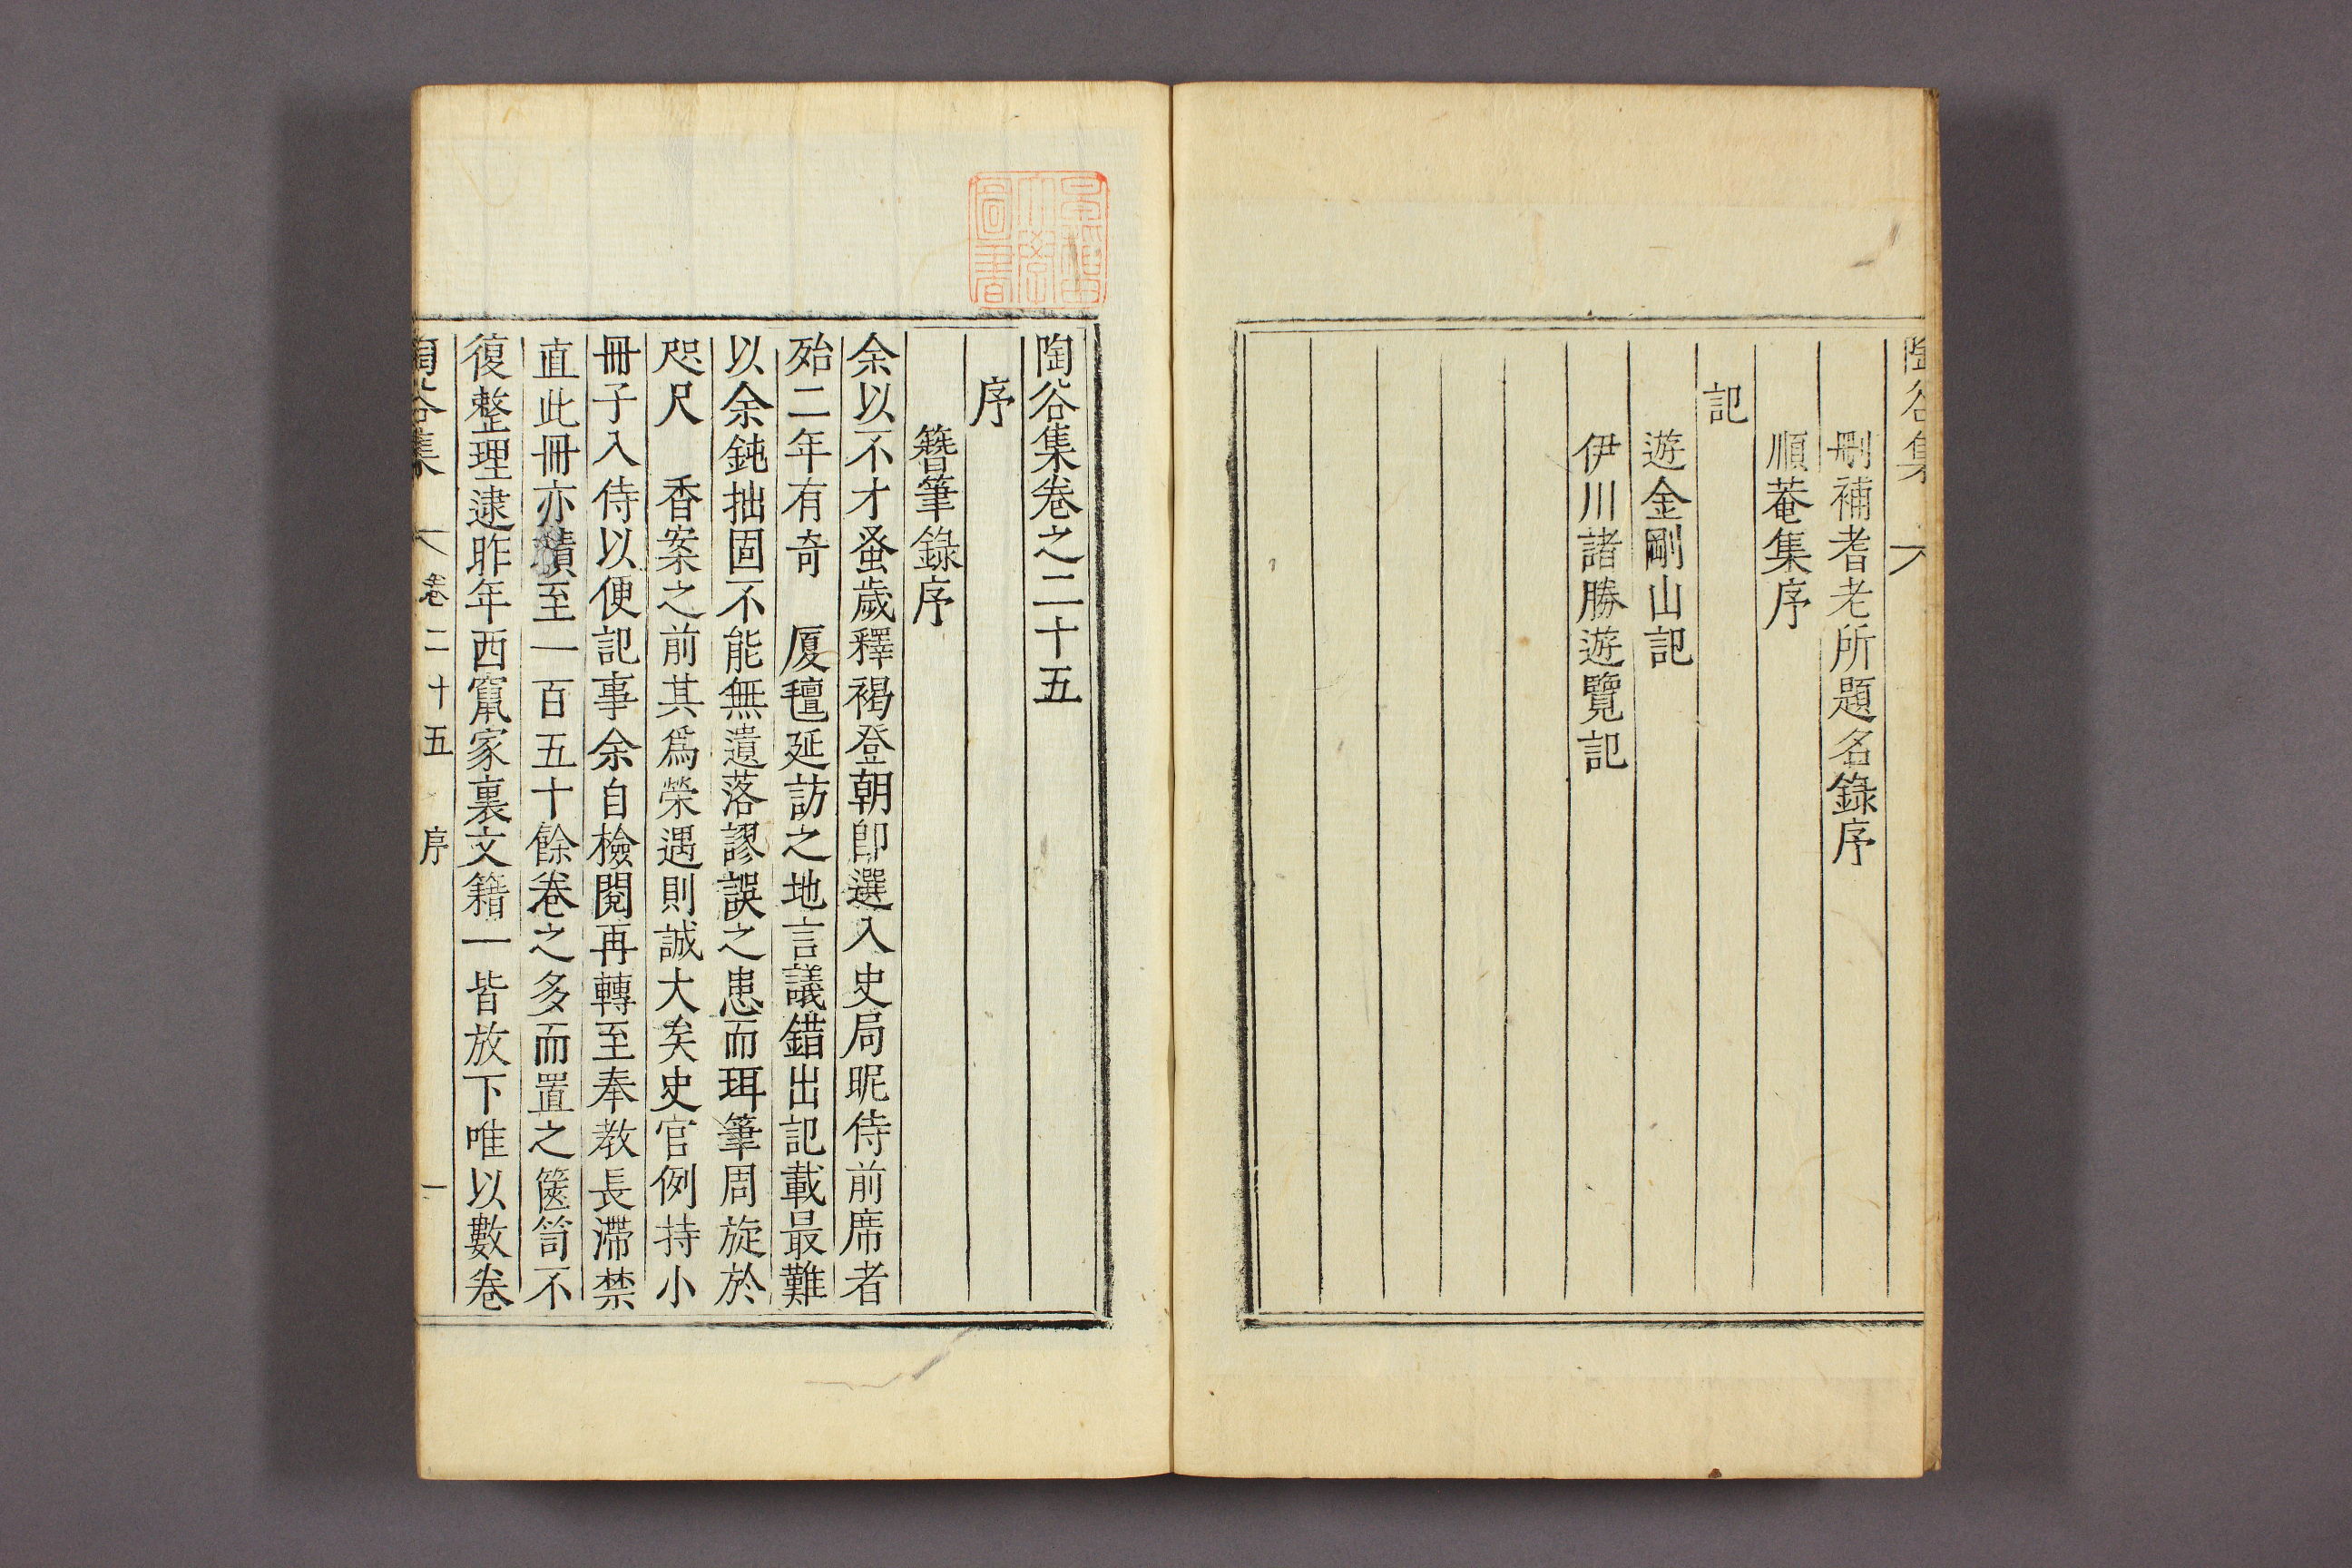 陶谷集
刪補耆老所題名錄序
順菴集序
記
遊金剛山記
伊川諸勝遊覽記
陶谷集卷之二十五
序
簪筆錄序
余以不才蚤歲釋褐登朝卽選入史局昵侍前席者
殆二年有奇　厦氊延訪之地言議錯出記載最難
以余鈍拙固不能無遺落謬誤之患而珥筆周旋於
咫尺　香案之前其爲榮遇則誠大矣史官例持小
冊子入侍以便記事余自檢閱再轉至奉教長滯禁
直此冊亦積至一百五十餘卷之多而置之篋笥不
復整理逮昨年西竄家裏文籍一皆放下唯以數卷
陶谷集　卷二十五　序　一